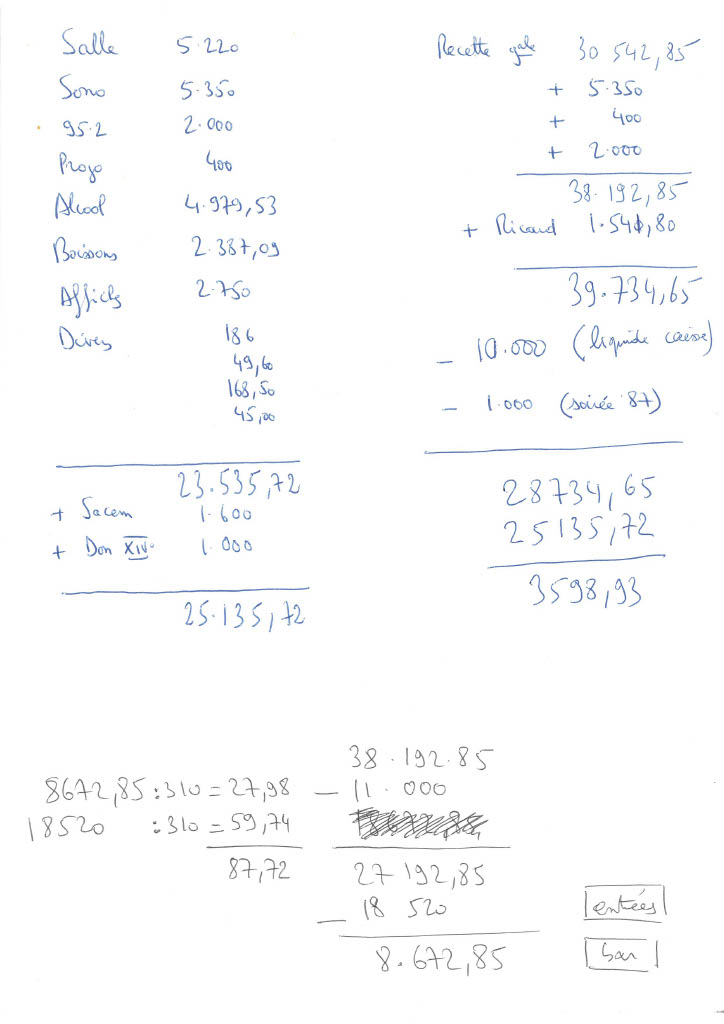 Salle 5.220
Sono 5.350
95.2 2.000
Progo 400
Alcool 4.979,53
Boissons 2.387,09
Affichs 2.750
Divers 186
49,60
168,50
45,00
23.535,72
+ Sacem 1.600
+ Don XIV 1.000
25.135,72
Recette gale 30 542,85
+ 5.350
+ 400
+ 2.000
38.192,85
+ Ricard 1.541,80
39.734,65
- 10.000 (liquide caisse)
- 1.000 (soirée '87)
28734,65
25135,72
3598,93
8672,85:310=27,98
18520 :310=59,74
87,72
38.192.85
- 11.000
27 192,85
- 18 520
8.672,85
entées
bar